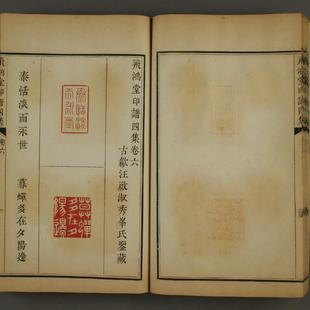 飛鴻堂印譜四集卷六
古歙汪啟淑秀峯氏鑒藏
泰恬淡而永世
暮蟬多在夕陽邊
飛鴻堂印譜四集
卷六